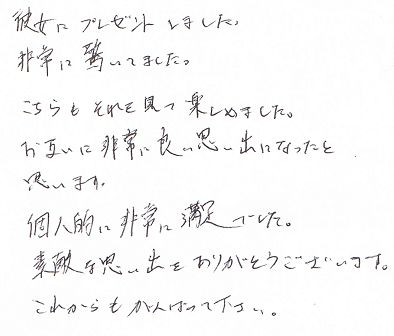 彼女にプレゼントしました。
非常に驚いてました。
こちらもそれを見て楽しめました。
お互いに非常に良い思い出になったと
思います。
個人的に非常に満足でした。
素敵な思い出をありがとうございます。
これからもがんばって下さい。